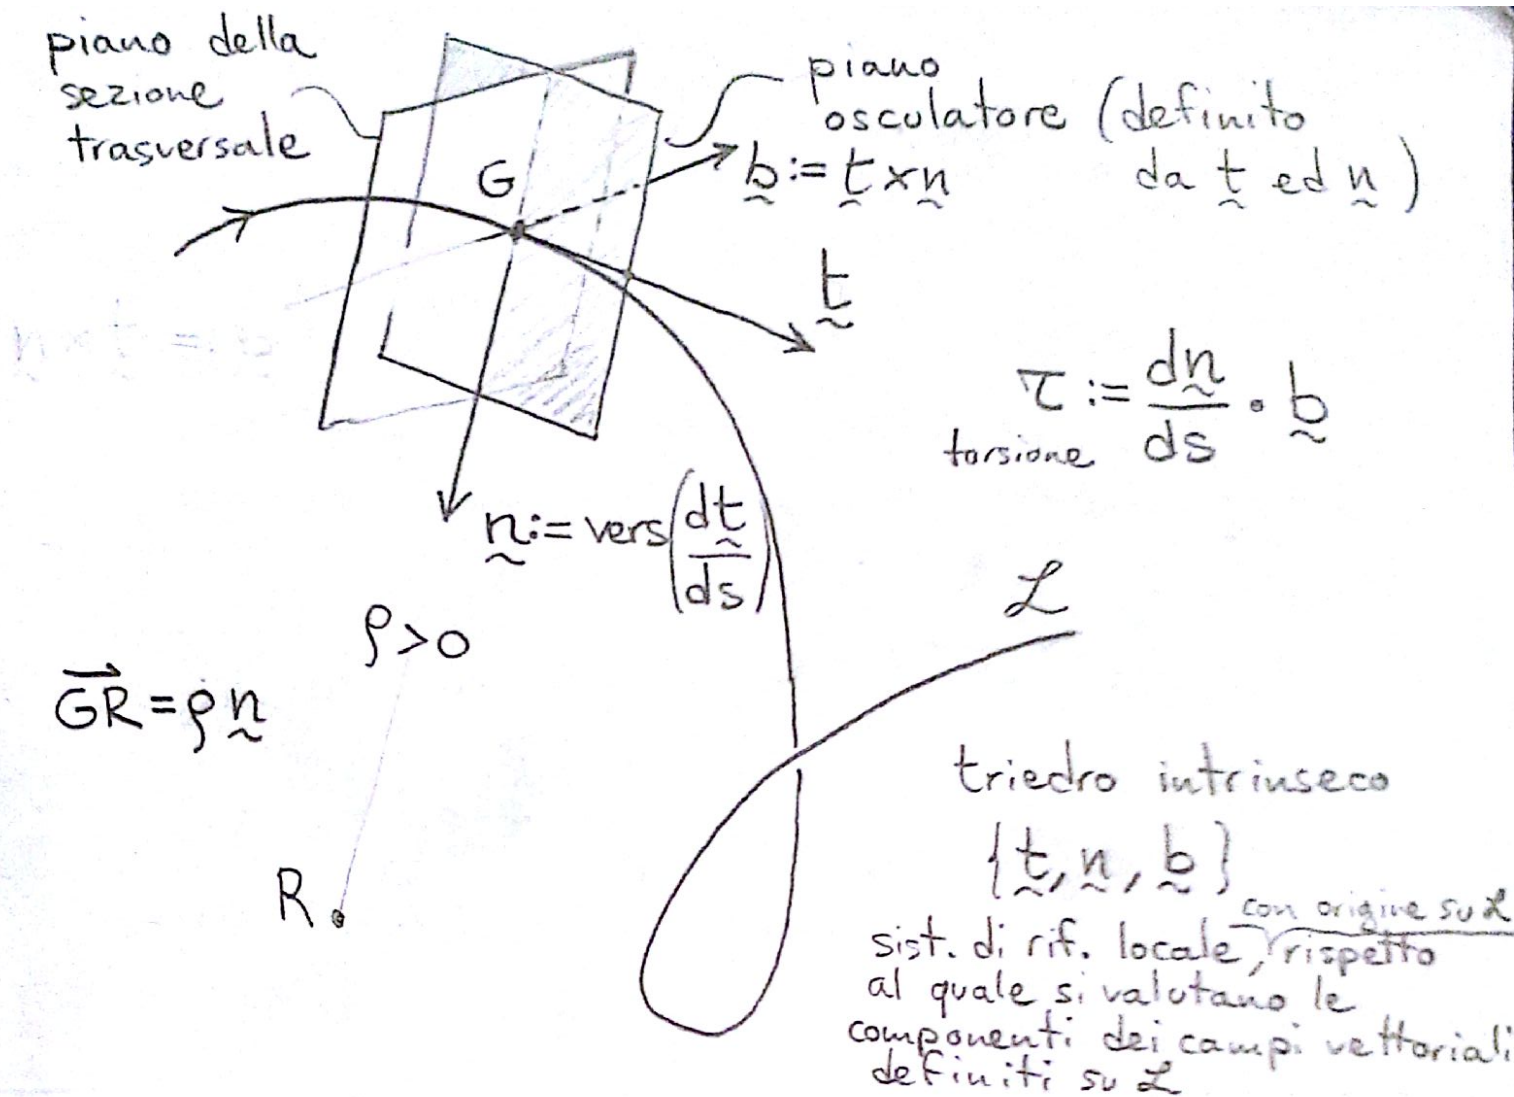 piano della
sezione
trasversale
piano
osculatore (definito
da t ed n)
G
b := t × n
t
τ := dn/ds · b
torsione
n := vers(dt/ds)
ρ > 0
GR = ρ n
R
ℒ
triedro intrinseco
{t, n, b}
con origine su ℒ
sist. di rif. locale, rispetto
al quale si valutano le
componenti dei campi vettoriali
definiti su ℒ